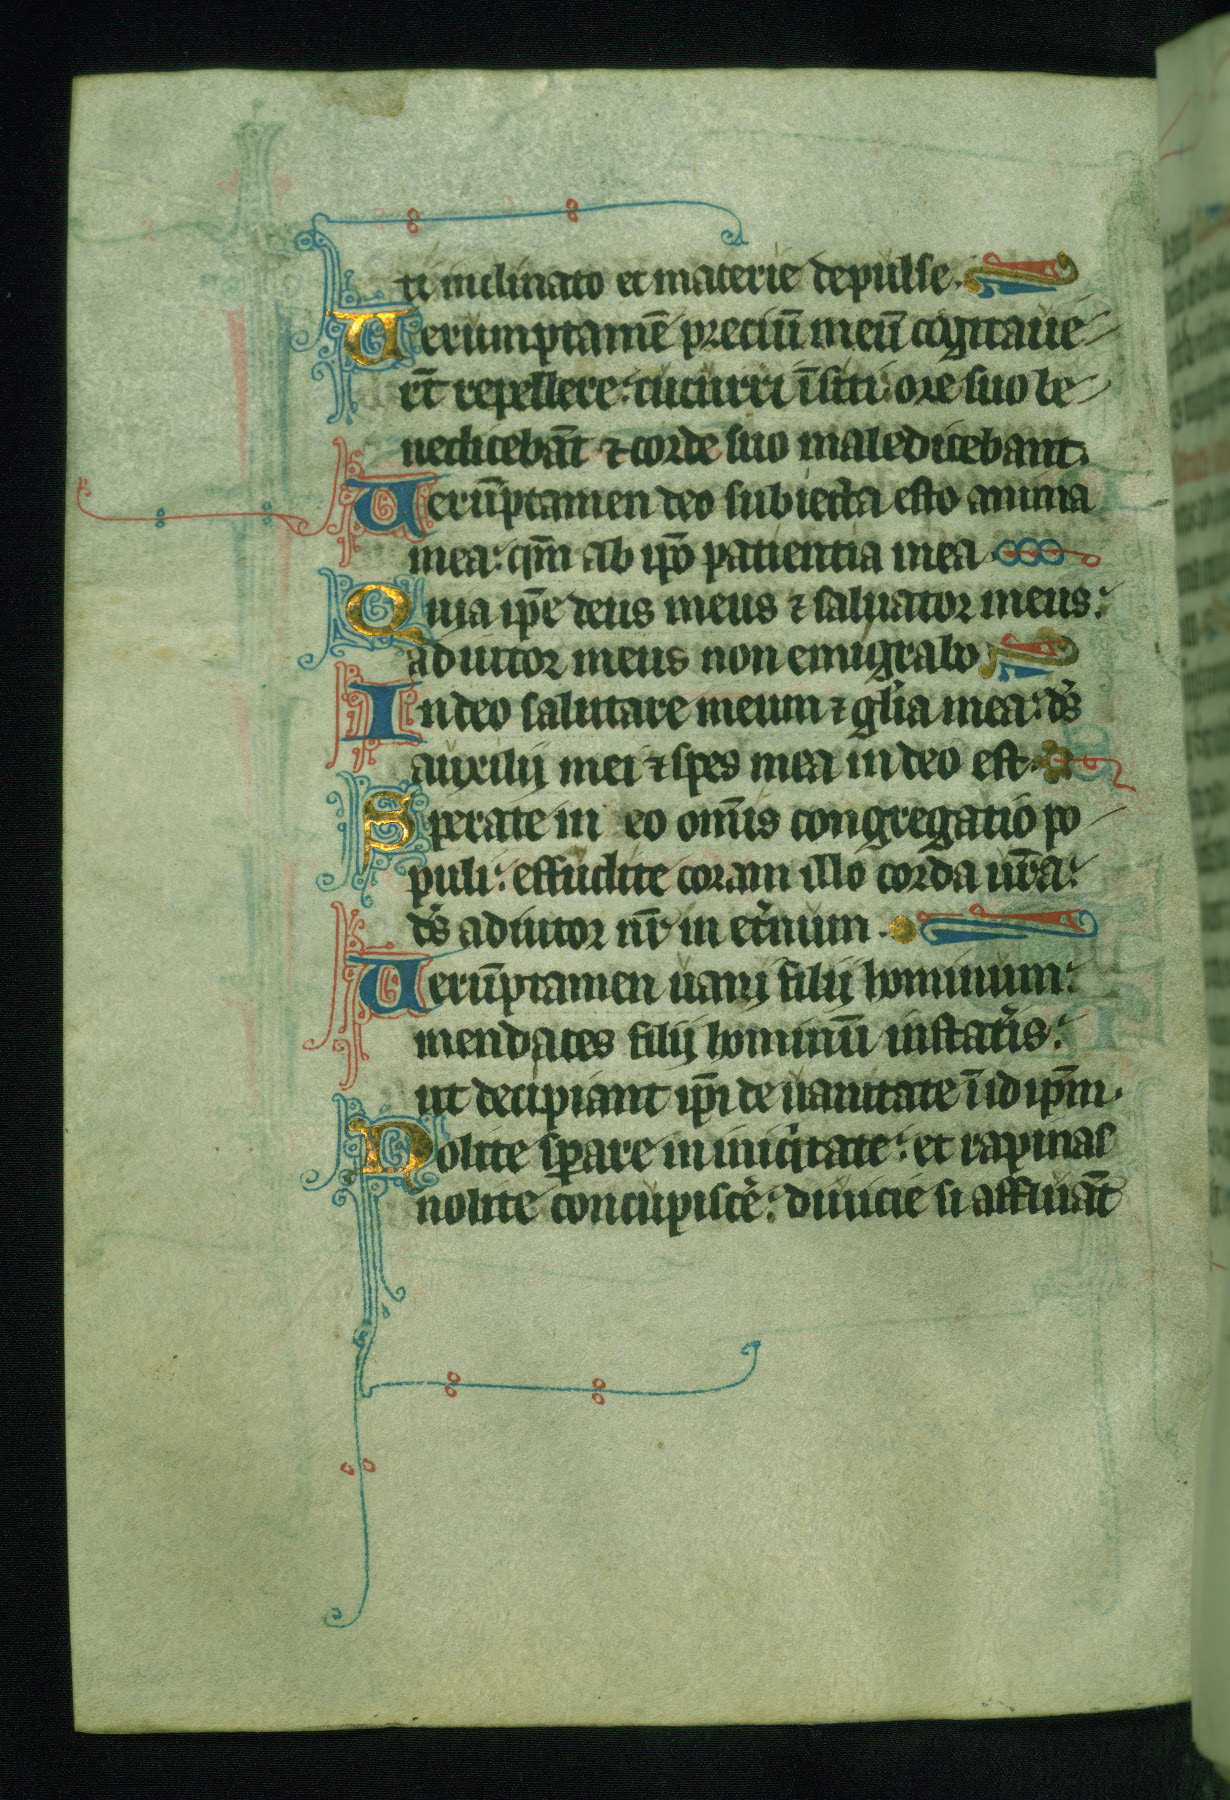 ti inclinato et materie depulse.
Uerumptamē preciū meū cogitaue
rt̄ repellere: cucurri ī siti: ore suo be
nedicebāt ⁊ corde suo maledicebant.
Uerūptamen deo subiecta esto anima
mea: qm̄ ab ip̄o patientia mea
Quia ip̄e deus meus ⁊ saluator meus:
adiutor meus non emigrabo
In deo salutare meum ⁊ gl̓ia mea: ds̄
auxilij mei ⁊ spes mea in deo est.
Sperate in eo om̄is congregatio po
puli: effundite coram illo corda ur̄a:
ds̄ adiutor nr̄ in et̓num.
Uerūptamen uani filij hominum:
mendaces filij hominū in stat̓is:
ut decipiant ip̄i de uanitate ī idip̄m.
Nolite sꝑare in iniq̓tate: et rapinas
nolite concupisce̓: diuicie si affluāt